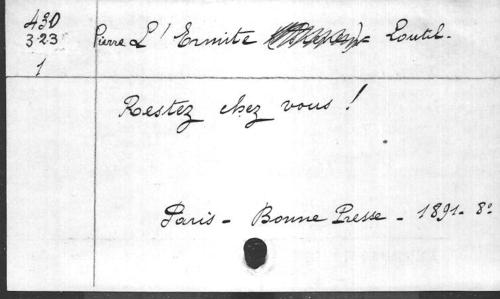 430
323
1
Pierre L'Ermite = Loutil.
Restez chez vous !
Paris - Bonne Presse - 1891 - 8º